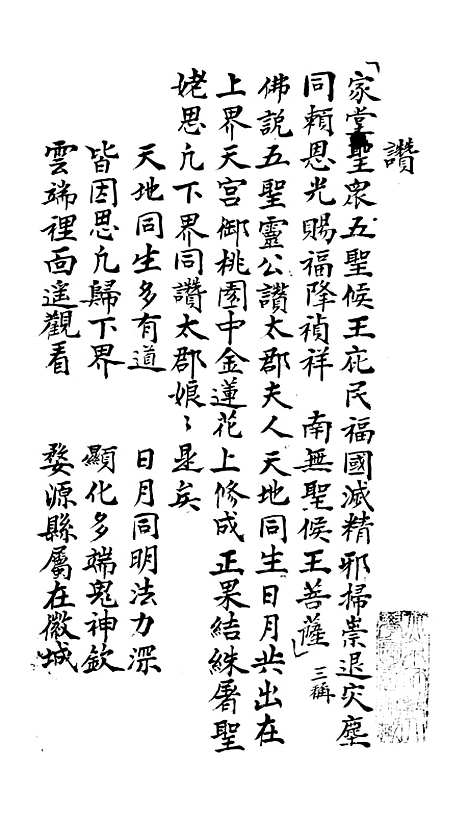 讚
「家堂聖衆五聖候王庇民福國滅精邪掃祟退灾塵
同賴恩光賜福降禎祥　南無聖侯王菩薩」三稱
佛説五聖靈公讚太郡夫人天地同生日月共出在
上界天宫御桃園中金蓮花上修成正果結姝屠聖
姥思凢下界同讚太郡娘〻是矣
天地同生多有道　日月同明法力深
皆因思凢歸下界　顯化多端鬼神欽
雲端裡面遥觀看　婺源縣屬在徽城